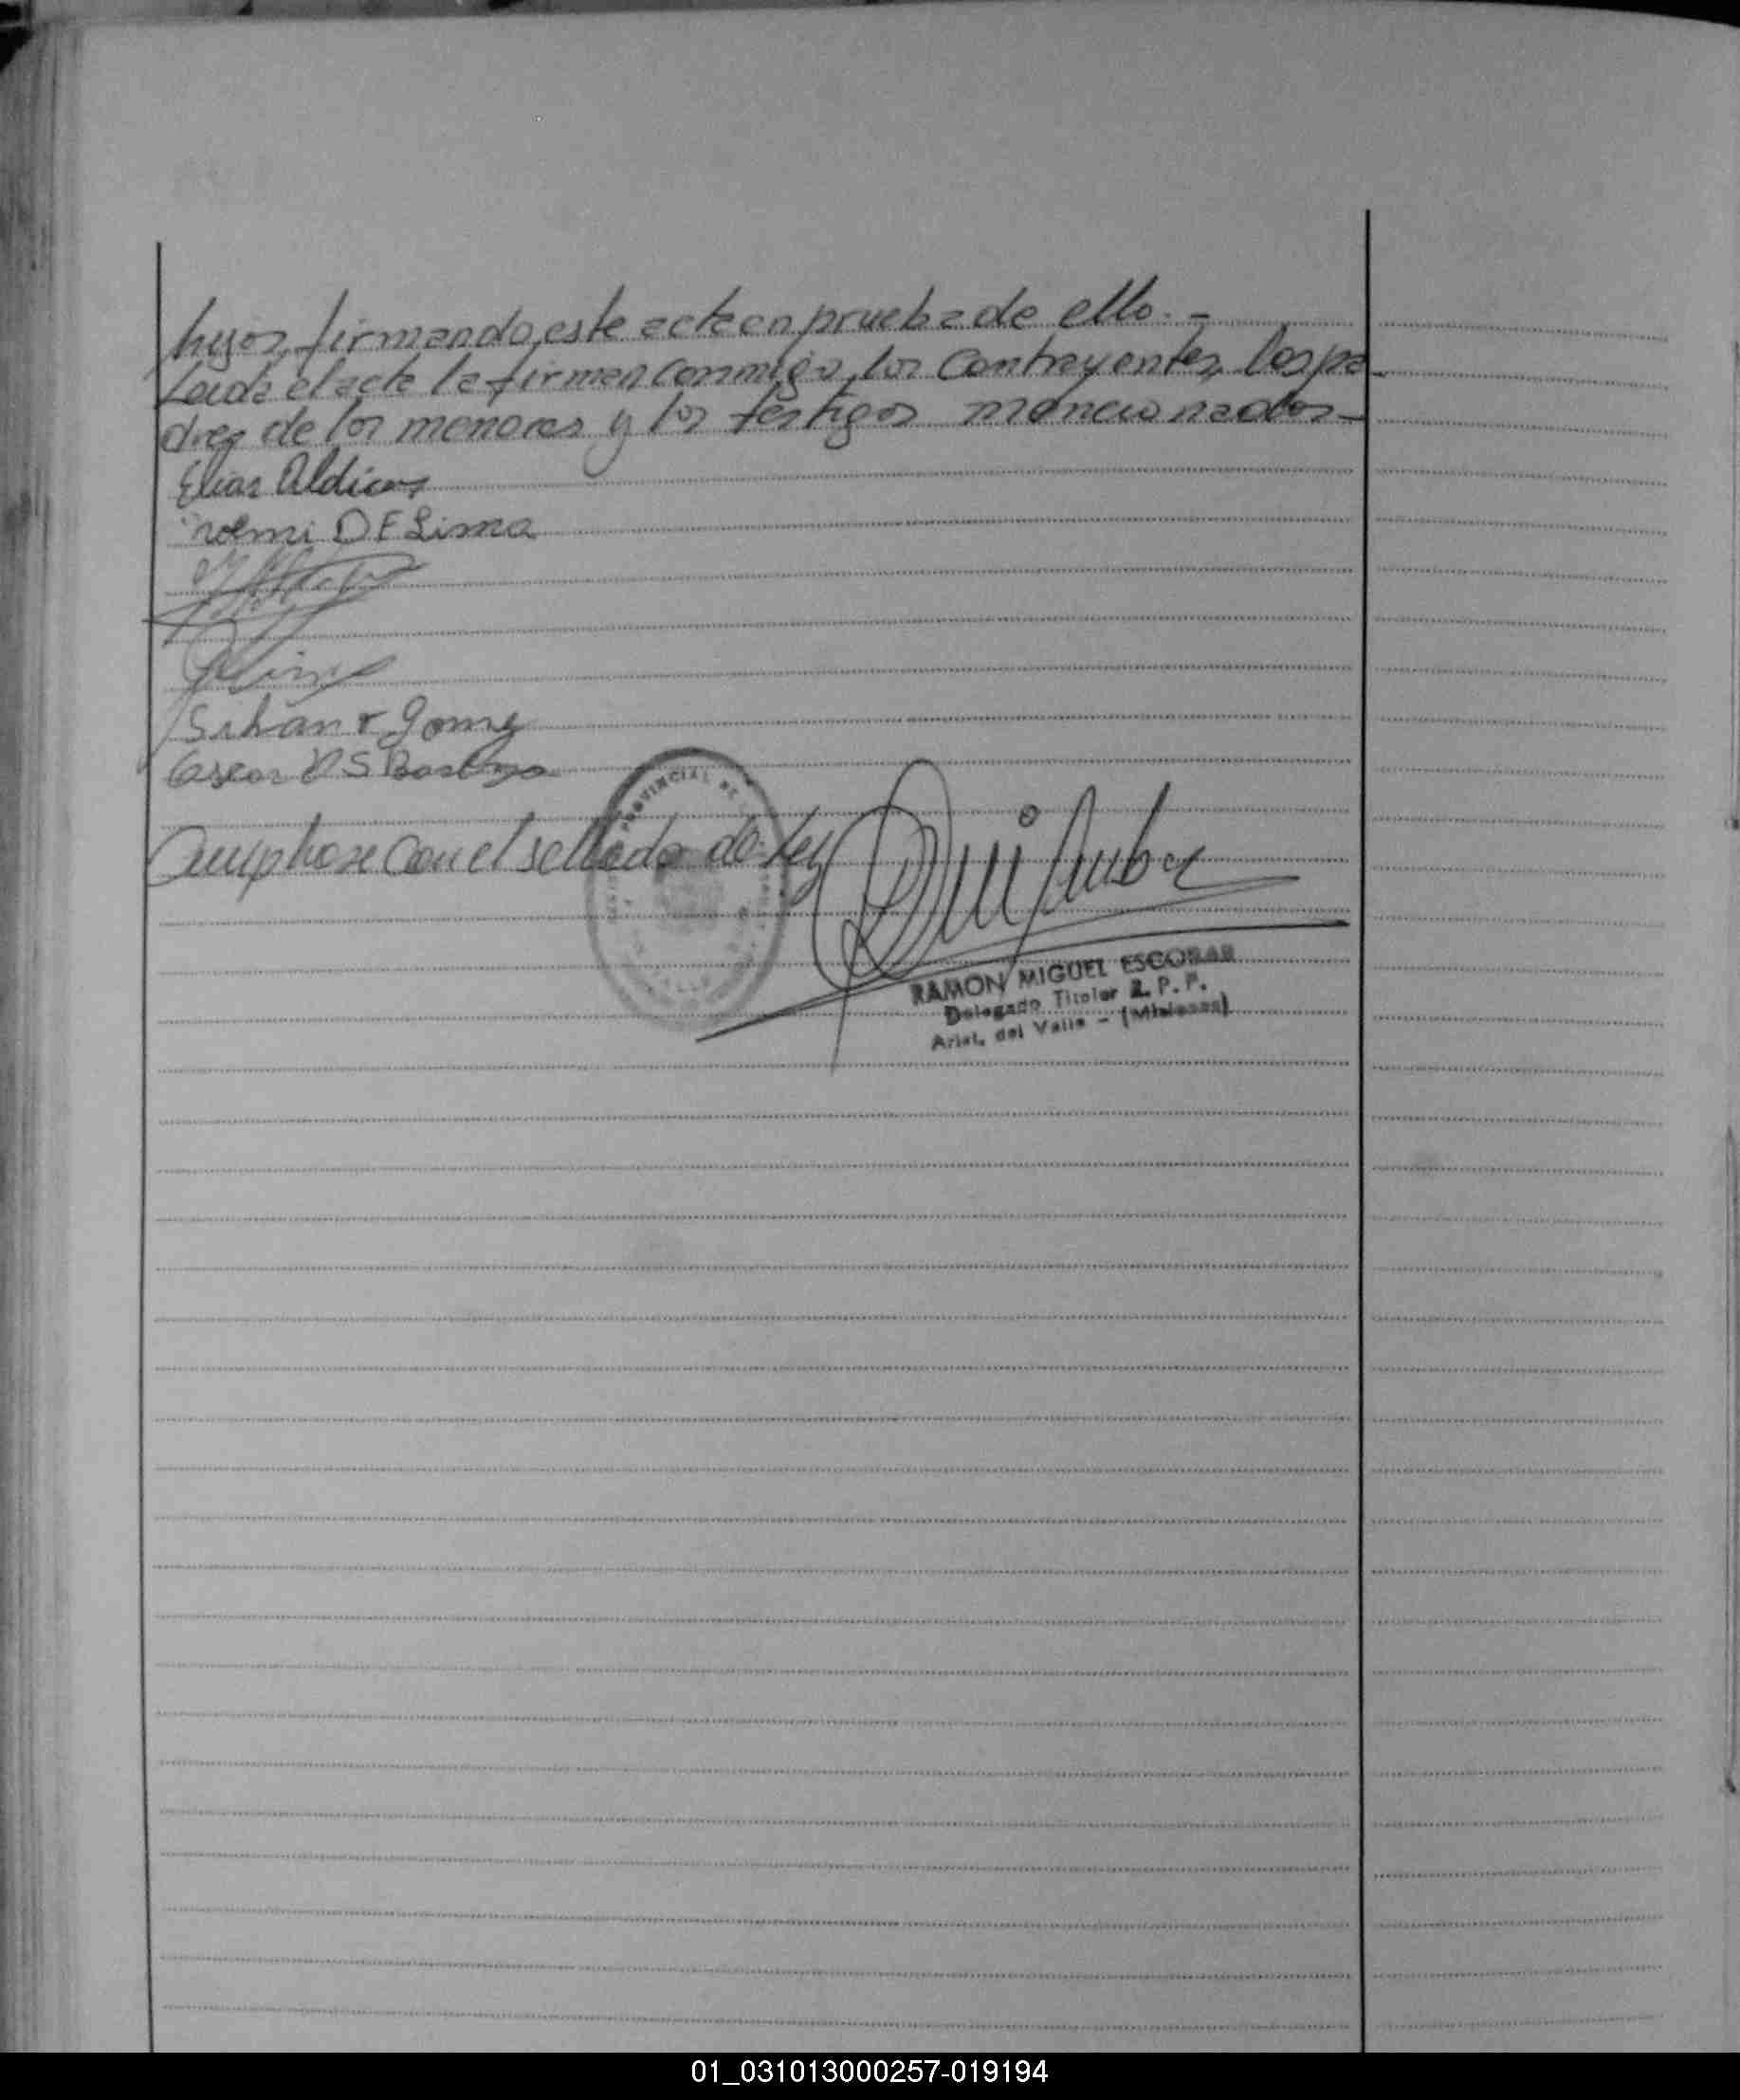 hijos, firmando este acta en prueba de ello. -
Leida el acta la firman conmigo, los contrayentes, los pa-
dres de los menores y los testigos mencionados -
Elias Aldi
Noemi DE Lima
Gomez
PROVINCIAL DE
con el sellado de Ley
RAMON MIGUEL ESCOBAR
Delegado Titular R. P. P.
Arist. del Valle - (Misiones)
01_031013000257-019194